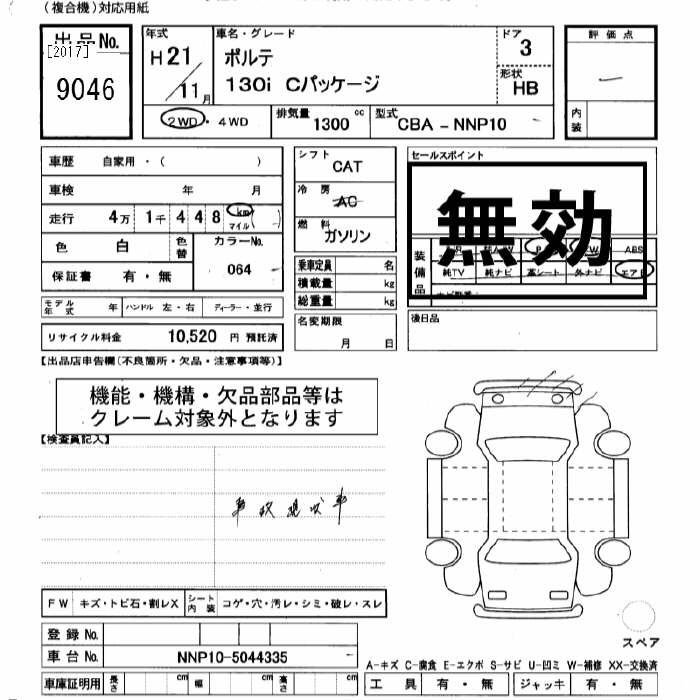 (複合機)対応用紙
出品No.
[2017]
9046
年式
H21/11月
車名・グレード
ポルテ
130i Cパッケージ
ドア
3
形状
HB
評価点
内装
2WD・4WD
排気量 1300 cc
型式 CBA-NNP10
車歴 自家用・( )
車検 年 月
走行 4万 1千 4 4 8 km マイル ( )
色 白 色替 カラーNo. 064
保証書 有・無
モデル年式 年 ハンドル 左・右 ディーラー・並行
リサイクル料金 10,520 円 預託済
シフト CAT
冷房 AC
燃料 ガソリン
乗車定員 名
積載量 kg
総重量 kg
名変期限 月 日
セールスポイント
無効
装備品
ABS
純TV 純ナビ 革シート 外ナビ エアB
後日品
【出品店申告欄(不良箇所・欠品・注意事項等)】
機能・機構・欠品部品等は
クレーム対象外となります
【検査員記入】
事故現状車
FW キズ・トビ石・割レX シート内装 コゲ・穴・汚レ・シミ・破レ・スレ
登録No.
車台No. NNP10-5044335
車庫証明用 長さ cm 幅 cm 高さ cm
スペア
A-キズ C-腐食 E-エクボ S-サビ U-凹ミ W-補修 XX-交換済
工具 有・無 ジャッキ 有・無